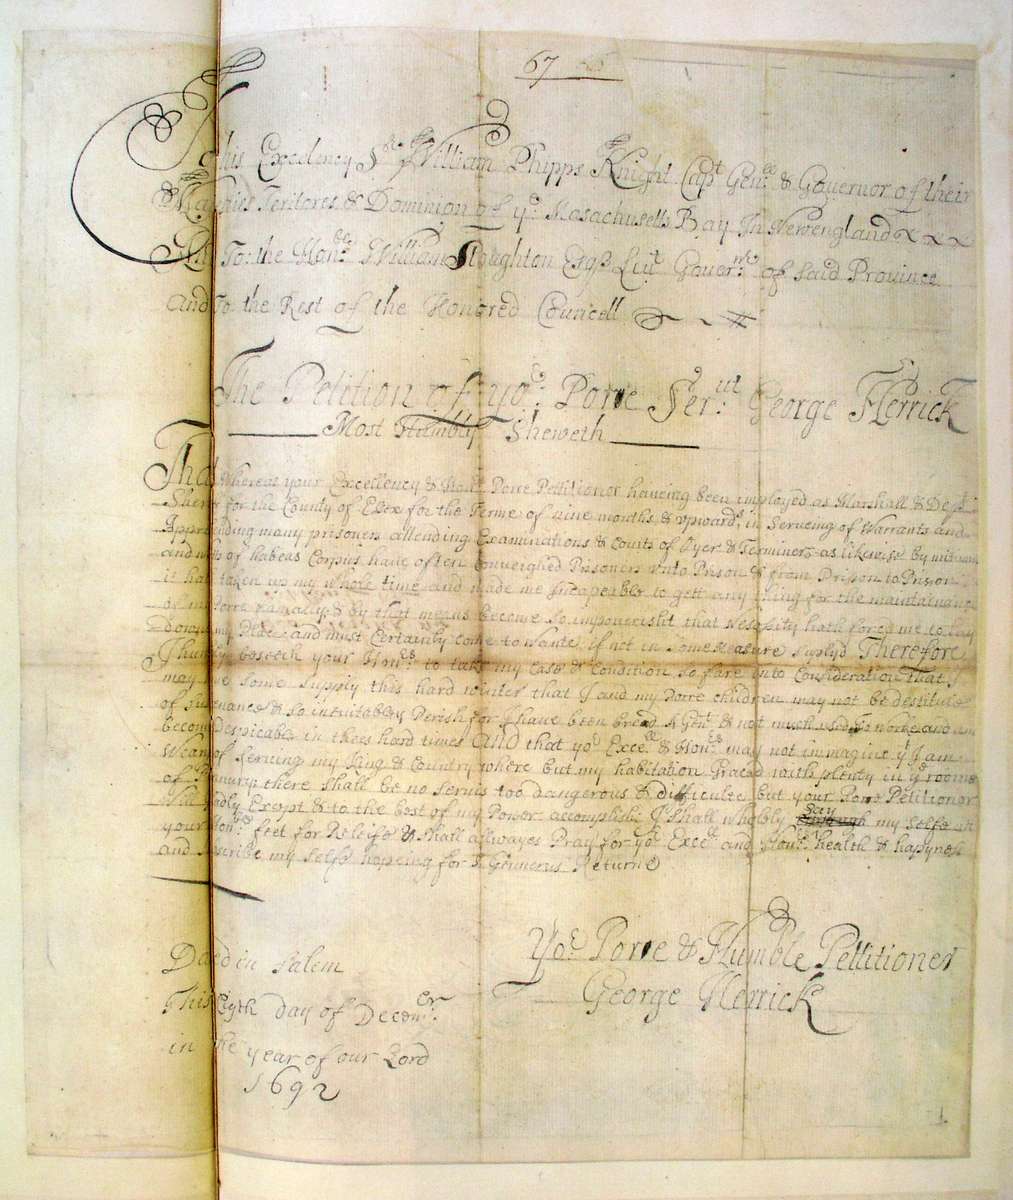 67
To his Excellency Sr William Phipps Knight Capt Genll & Governor of their
Majties Teritores & Dominion of ye Masachusetts Bay In Newengland x x x
And To: the Honble William Stoughton Esqr Liut Governr of said Province
and To the Rest of the Honored Councell
The Petition of yor Porre Servt George Herrick
Most Humbly Sheweth
That Whereas your Excellency & Honrs Porre Pettitioner haveing been imployed as Marshall & Dept
Sherif for the County of Essex for the Terme of nine months & upwards in Serveing of Warrants and
Apprending many prisoners attending Examinations & Courts of Oyer & Terminer as likewise by mitimus
and writts of habeas Corpus have often Conveighed Prisoners unto Prison & from Prison to Prison
it hath taken up my whole time and made me Incapeable to gett any thing for the maintainance
of my Porre ffamally & by that means become so impouerisht that Nesesity hath forced me to lay
downe my Place and must Certainly come to wante if not in some Measure Suplyd Therefore
I humbly beseech your Honrs to take my Case & Condition so fare into Consideration that I
may have some Supply this hard winter that I and my Porre children may not be destitute
of sustenance & so inevitabley Perish for I have been bred a Gent & not much used to worke and am
become Despicable in thees hard times And that yor Excelly & Honrs may not immagine yt I am
Weary of Serveing my King & Country where but my habitation Graced with plenty in ye roome
of Penurye there shall be no servis too dangerous & difficulte but your Porre Petitioner
Will gladly Except & to the best of my Power accomplish I shall wholely Lay my Selfe at
your Honrs feet for Releife & shall allwayes Pray for yor Excelly and Honrs health & hapynes
and subscribe my Selfe hopeing for a Gennerus Returne
Dated in Salem
This Eigth day of Decemr
in the year of our Lord
1692
Yor Porre & Humble Pettitioner
George Herrick